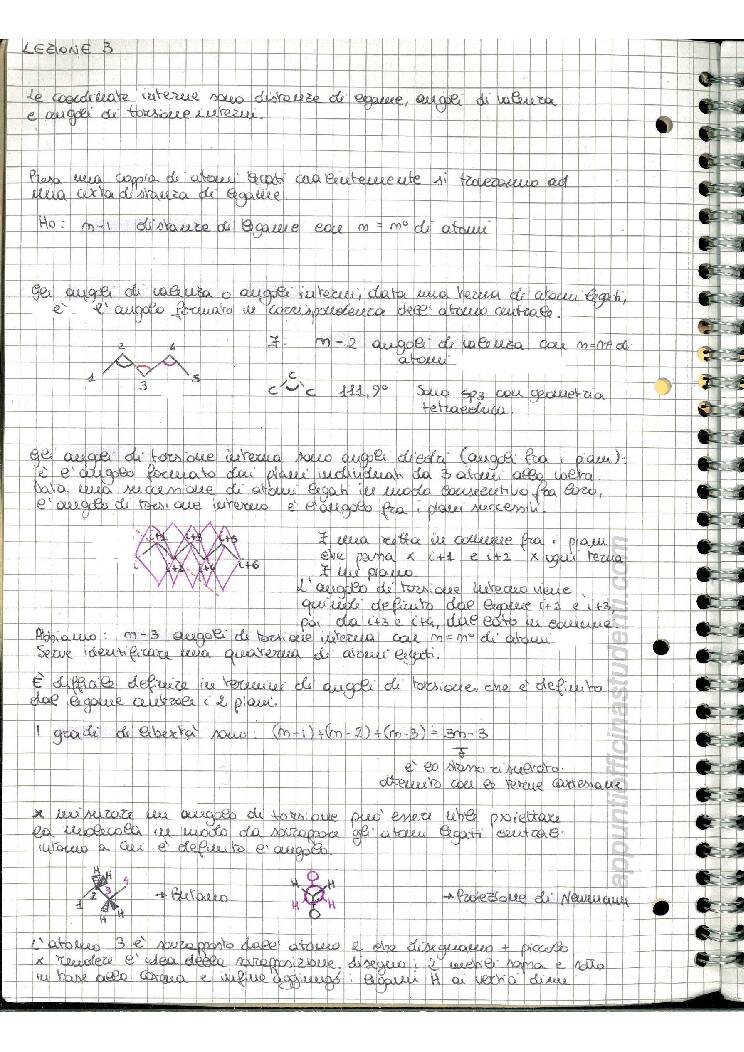 LEZIONE 3
Le coordinate interne sono distanze di legame, angoli di valenza
e angoli di torsione interni.
Presa una coppia di atomi legati covalentemente si troveranno ad
una certa distanza di legame.
Ho: n-1 distanze di legame con n = n° di atomi
Gli angoli di valenza o angoli interni, data una terna di atomi legati,
è l'angolo formato in corrispondenza dell'atomo centrale.
∃: n-2 angoli di valenza con n=n° di
atomi
1 2 3 4 5
C C C 111,9° Sono sp3 con geometria
tetraedrica.
Gli angoli di torsione interna sono angoli diedri (angoli fra i piani):
è l'angolo formato dai piani individuati da 3 atomi alla volta.
Data una successione di atomi legati in modo consecutivo fra loro,
l'angolo di torsione interno è l'angolo fra i piani successivi.
i i+1 i+2 i+3 i+4 i+5 i+6
∃ una retta in comune fra i piani
che passa x i+1 e i+2 x ogni terna
∃ un piano.
L'angolo di torsione interno viene
quindi definito dal legame i+2 e i+3,
poi da i+3 e i+4, dal lato in comune
Abbiamo: n-3 angoli di torsione interna con n=n° di atomi
Serve identificare una quaterna di atomi legati.
È difficile definire in termini di angoli di torsione, che è definito
dal legame centrale i 2 piani.
I gradi di libertà sono: (n-1)+(n-2)+(n-3) = 3n-3
è lo stesso risultato
ottenuto con le terne cartesiane
x misurare un angolo di torsione può essere utile proiettare
la molecola in modo da sovrapporre gli atomi legati centrali
intorno a cui è definito l'angolo.
1 2 3 4 H H H H → Butano
H H H H → Proiezione di Newmann
L'atomo 3 è sovrapposto dall'atomo 2 che disegnamo + piccolo
x rendere l'idea della sovrapposizione, disegna i 2 metili sopra e sotto
in base alla catena e infine aggiungi i legami H ai vertici
appuntiofficinastudenti.com